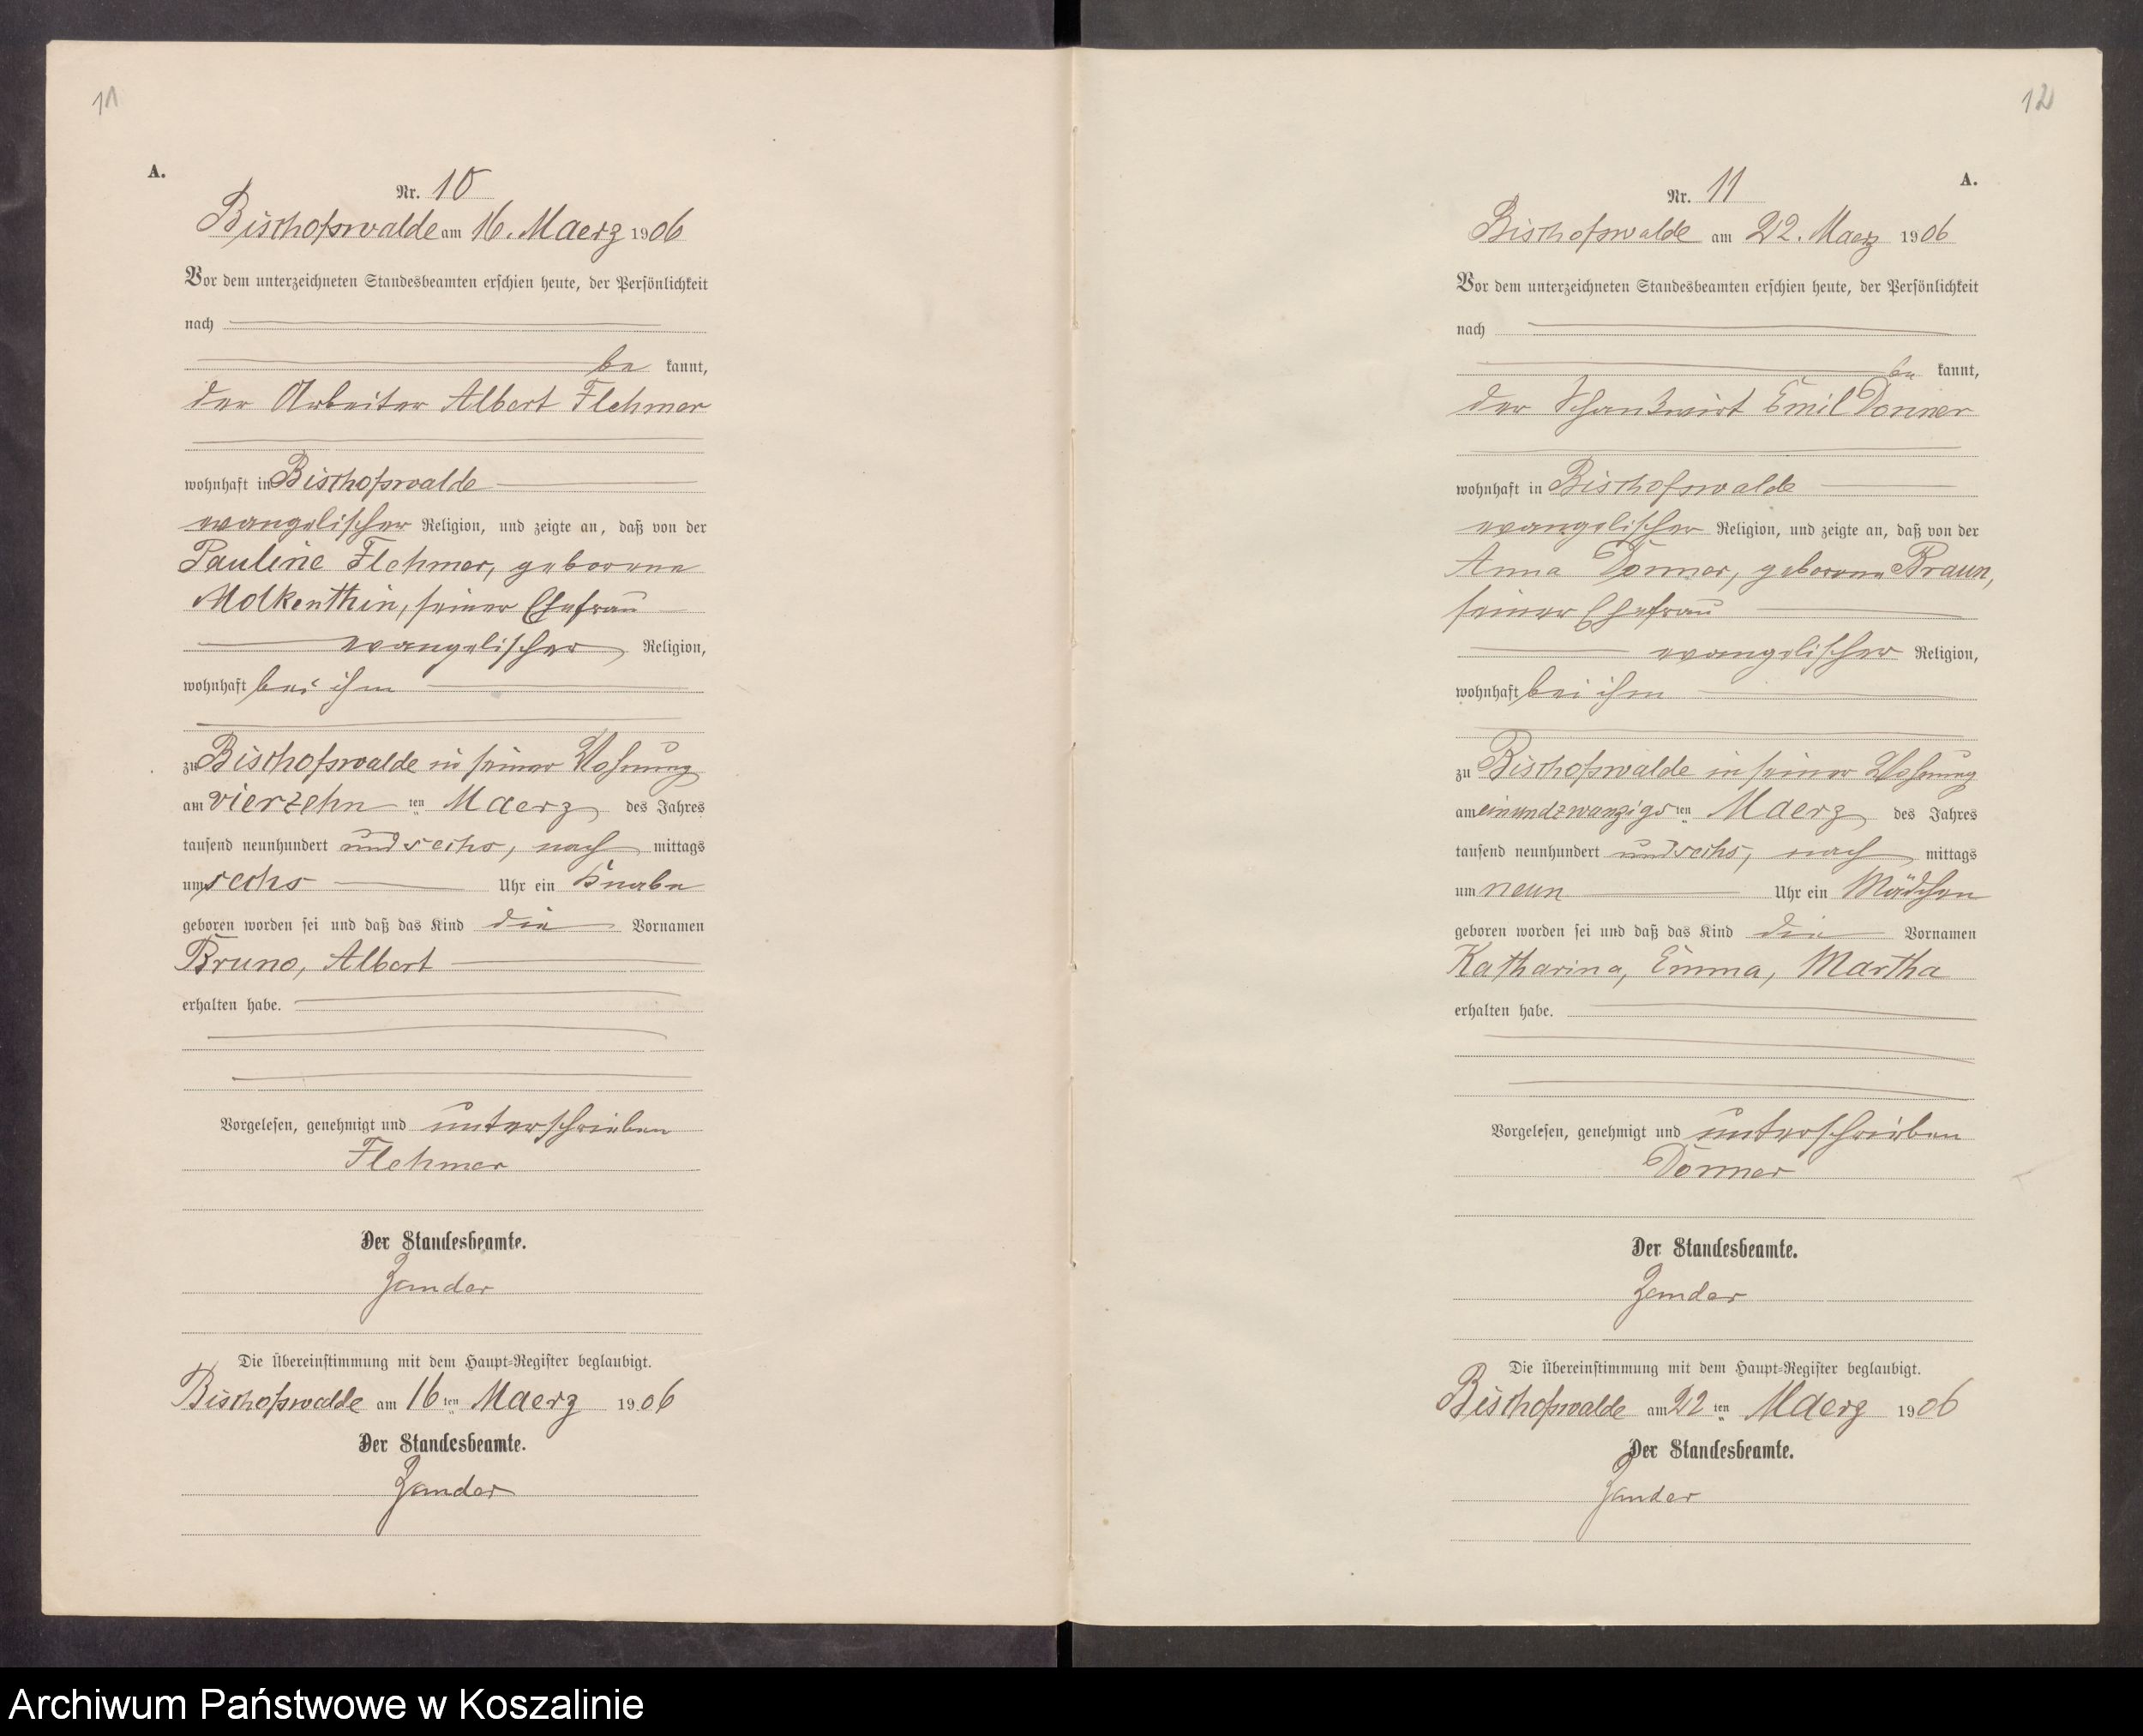 11
A.
Nr. 10
Bischofswalde am 16. Maerz 1906
Vor dem unterzeichneten Standesbeamten erschien heute, der Persönlichkeit
nach
be kannt,
der Arbeiter Albert Flehmer
wohnhaft in Bischofswalde
evangelischer Religion, und zeigte an, daß von der
Pauline Flehmer, geborene
Molkenthin, seiner Ehefrau
evangelischer Religion,
wohnhaft bei ihm
zu Bischofswalde in seiner Wohnung
am vierzehn ten Maerz des Jahres
tausend neunhundert und sechs, nach mittags
um sechs Uhr ein Knabe
geboren worden sei und daß das Kind die Vornamen
Bruno, Albert
erhalten habe.
Vorgelesen, genehmigt und unterschrieben
Flehmer
Der Standesbeamte.
Zander
Die Übereinstimmung mit dem Haupt-Register beglaubigt.
Bischofswalde am 16 ten Maerz 1906
Der Standesbeamte.
Zander
12
A.
Nr. 11
Bischofswalde am 22. Maerz 1906
Vor dem unterzeichneten Standesbeamten erschien heute, der Persönlichkeit
nach
be kannt,
der Schankwirt Emil Donner
wohnhaft in Bischofswalde
evangelischer Religion, und zeigte an, daß von der
Anna Donner, geborene Braun,
seiner Ehefrau
evangelischer Religion,
wohnhaft bei ihm
zu Bischofswalde in seiner Wohnung
am einundzwanzigs ten Maerz des Jahres
tausend neunhundert und sechs, nach mittags
um neun Uhr ein Mädchen
geboren worden sei und daß das Kind die Vornamen
Katharina, Emma, Martha
erhalten habe.
Vorgelesen, genehmigt und unterschrieben
Donner
Der Standesbeamte.
Zander
Die Übereinstimmung mit dem Haupt-Register beglaubigt.
Bischofswalde am 22 ten Maerz 1906
Der Standesbeamte.
Zander
Archiwum Państwowe w Koszalinie